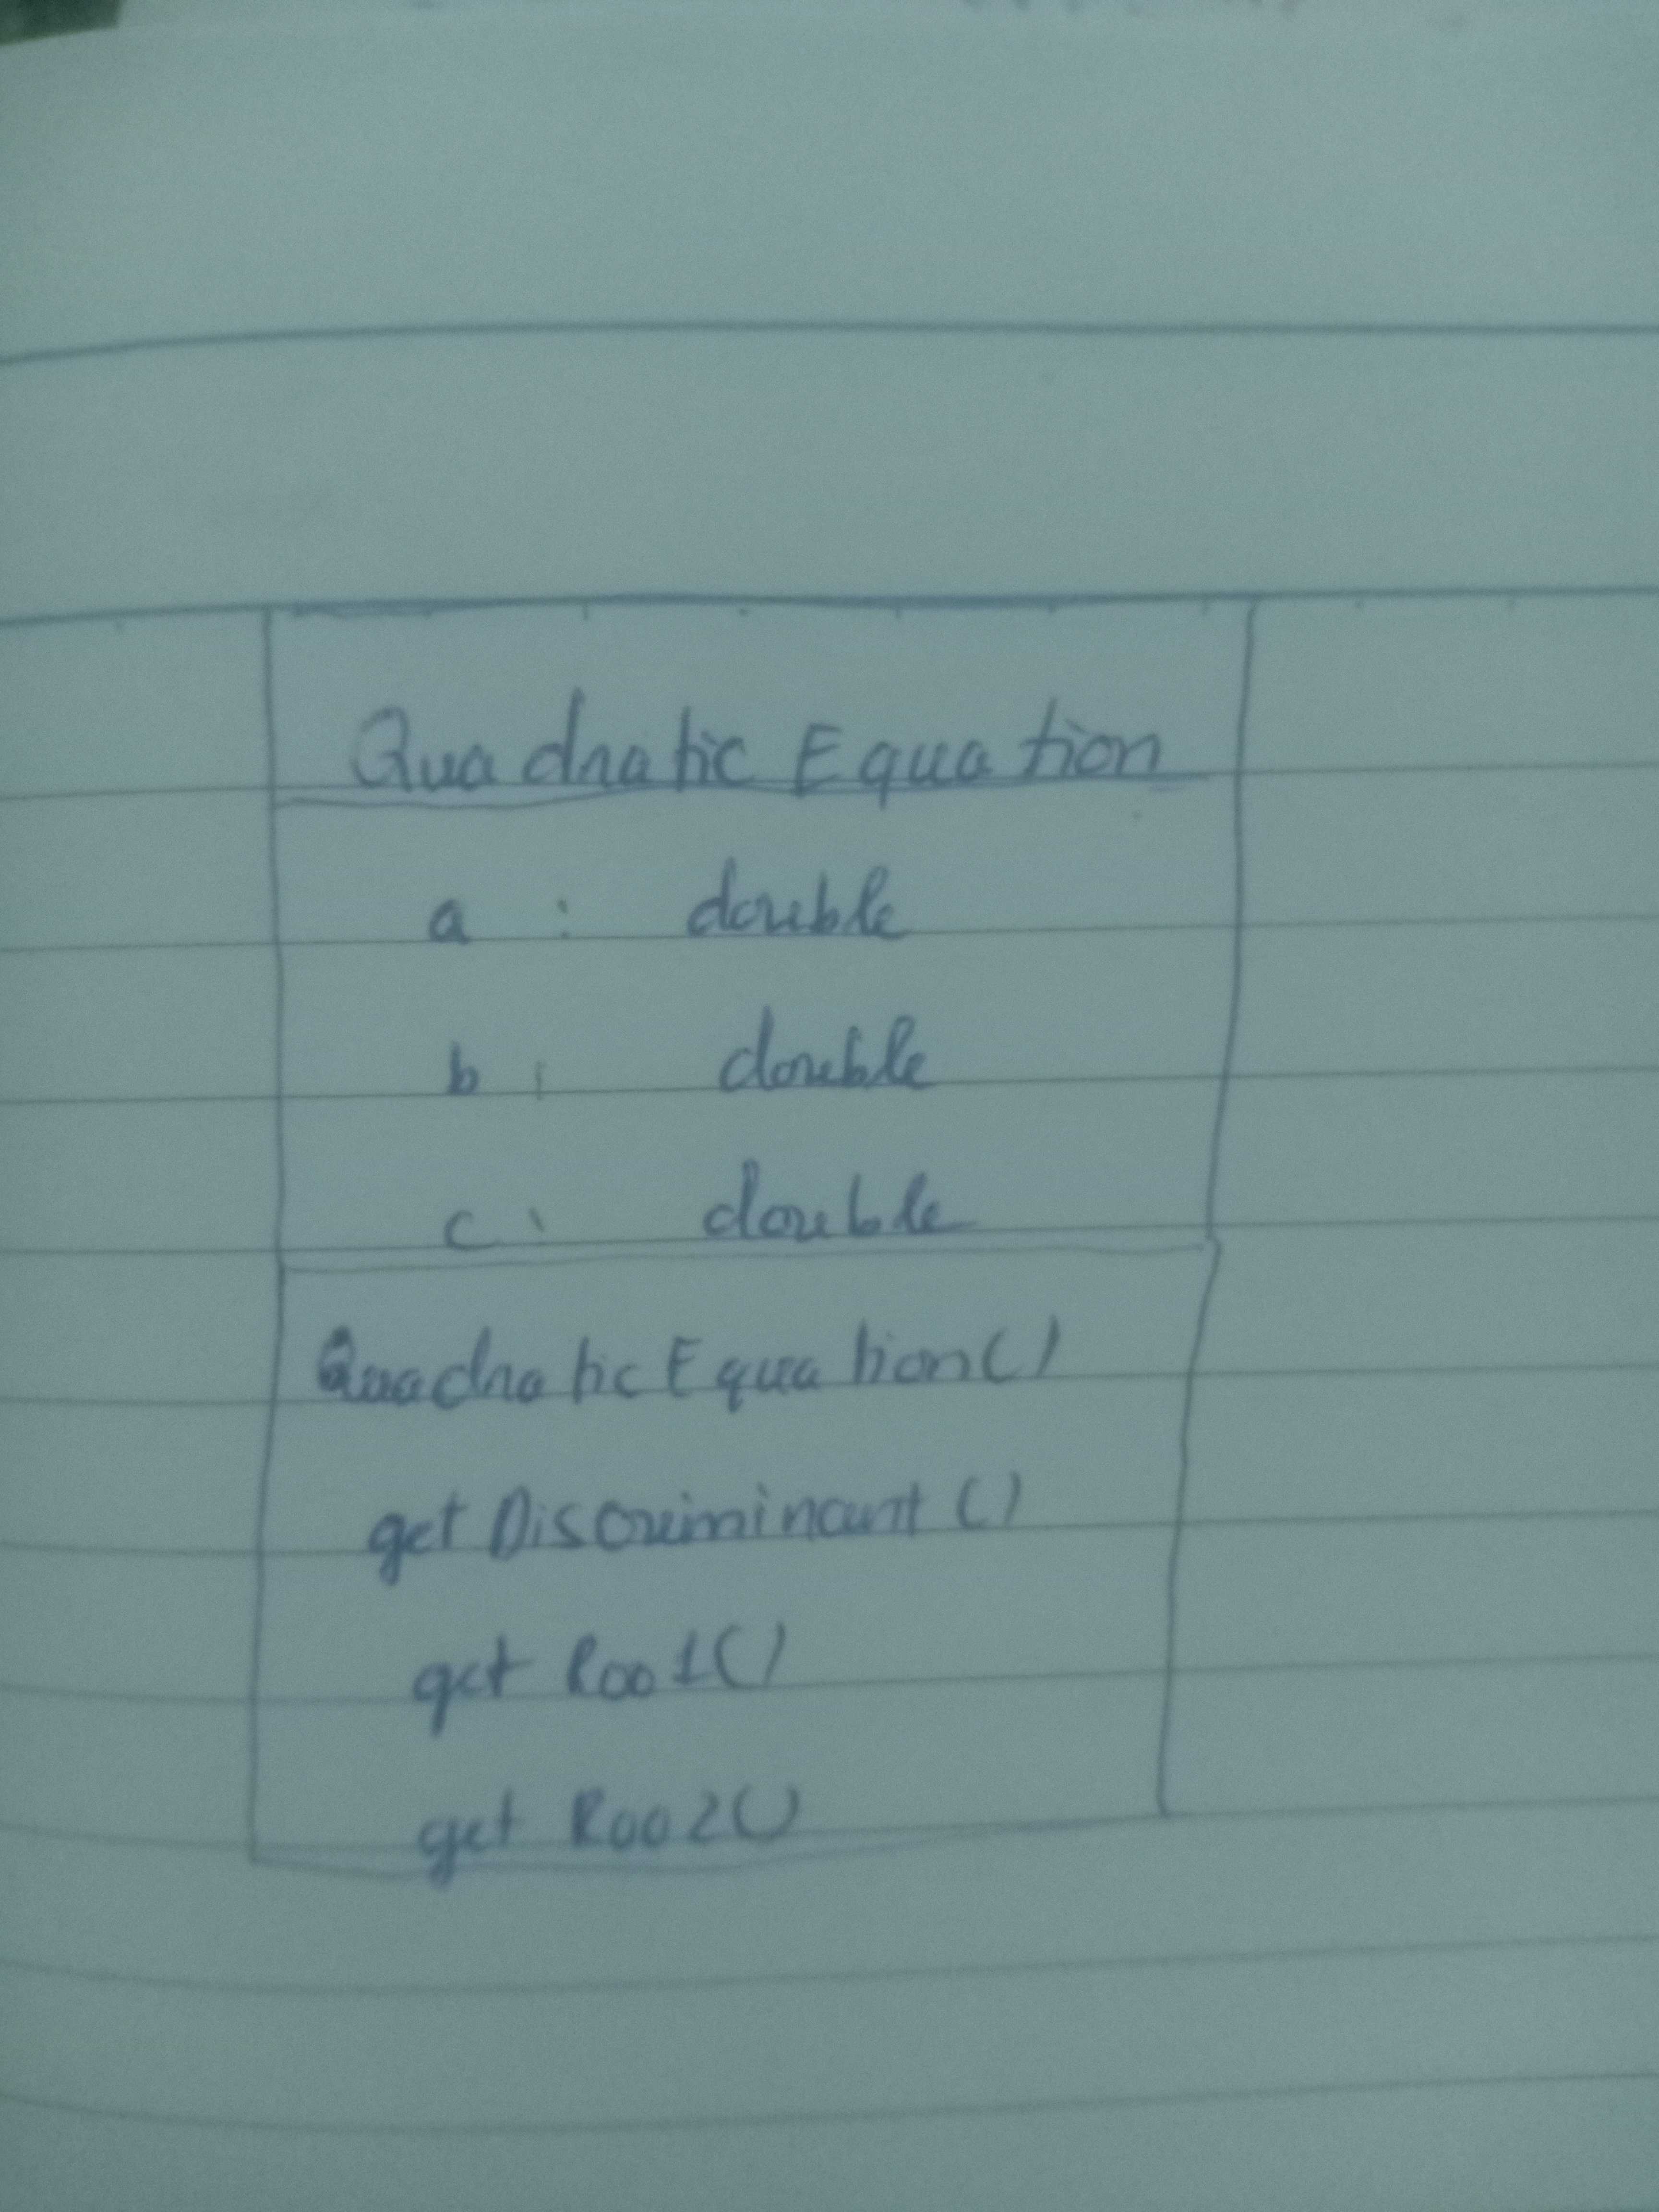 Quadratic Equation
a : double
b : double
c : double
QuadraticEquation()
getDiscriminant()
get Roo1()
get Roo2()